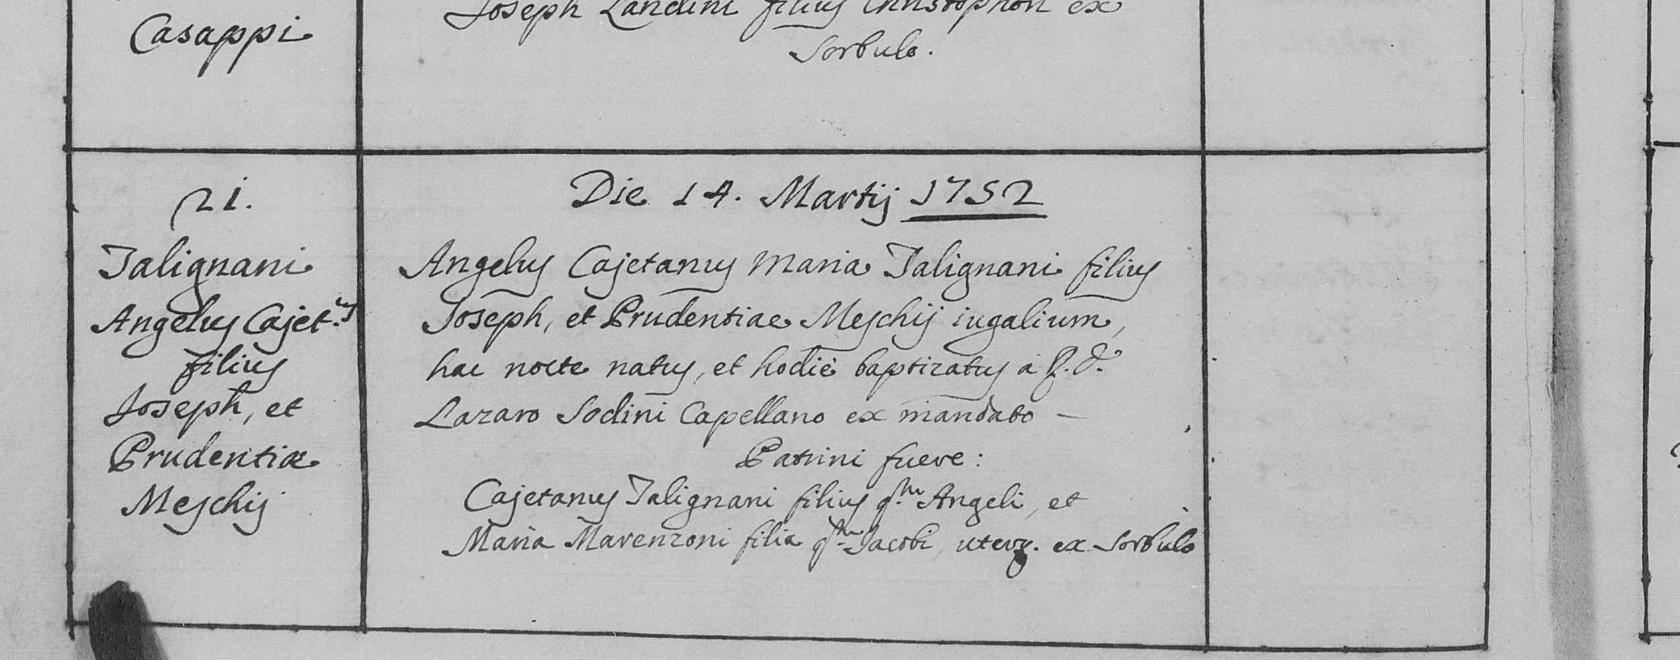 Casappi
Joseph Landini filius Christophori ex
Sorbulo.
21.
Talignani
Angelus Cajet.us
filius
Joseph, et
Prudentiæ
Meschij
Die 14. Martij 1752
Angelus Cajetanus Maria Talignani filius
Joseph, et Prudentiae Meschij iugalium,
hac nocte natus, et hodie baptizatus à P. D.
Lazaro Sodini Capellano ex mandato –
Patrini fuere:
Cajetanus Talignani filius q.m Angeli, et
Maria Marenzoni filia q.m Jacobi, uterq. ex Sorbulo